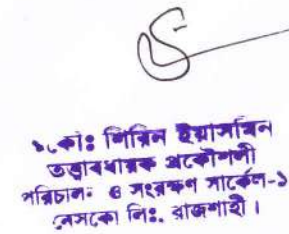 মোঃ শিরিন ইয়াসমিন
তত্ত্বাবধায়ক প্রকৌশলী
পরিচালন ও সংরক্ষণ সার্কেল-১
নেসকো লিঃ, রাজশাহী।